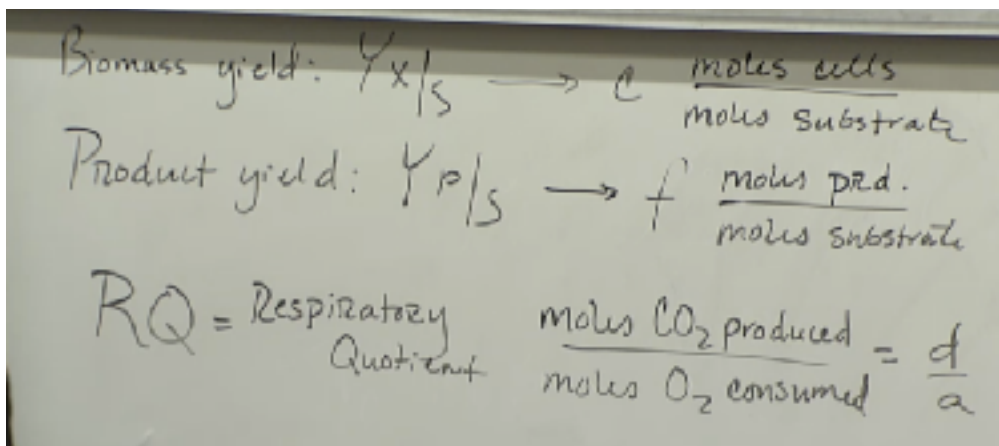 Biomass yield: Yx/s → c moles cells / moles substrate
Product yield: Yp/s → f moles prd. / moles substrate
RQ = Respiratory Quotient moles CO₂ produced / moles O₂ consumed = d / a